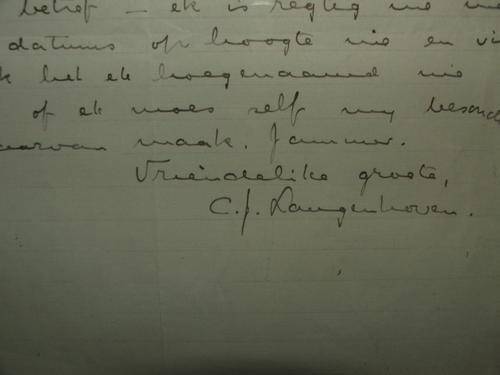 betref — ek is regtig nie
datums op hoogte nie en vi
k het ek hoegenaamd nie
of ek moes self my besond
aarvan maak. Jammer.
Vriendelike groete,
C.J. Langenhoven.